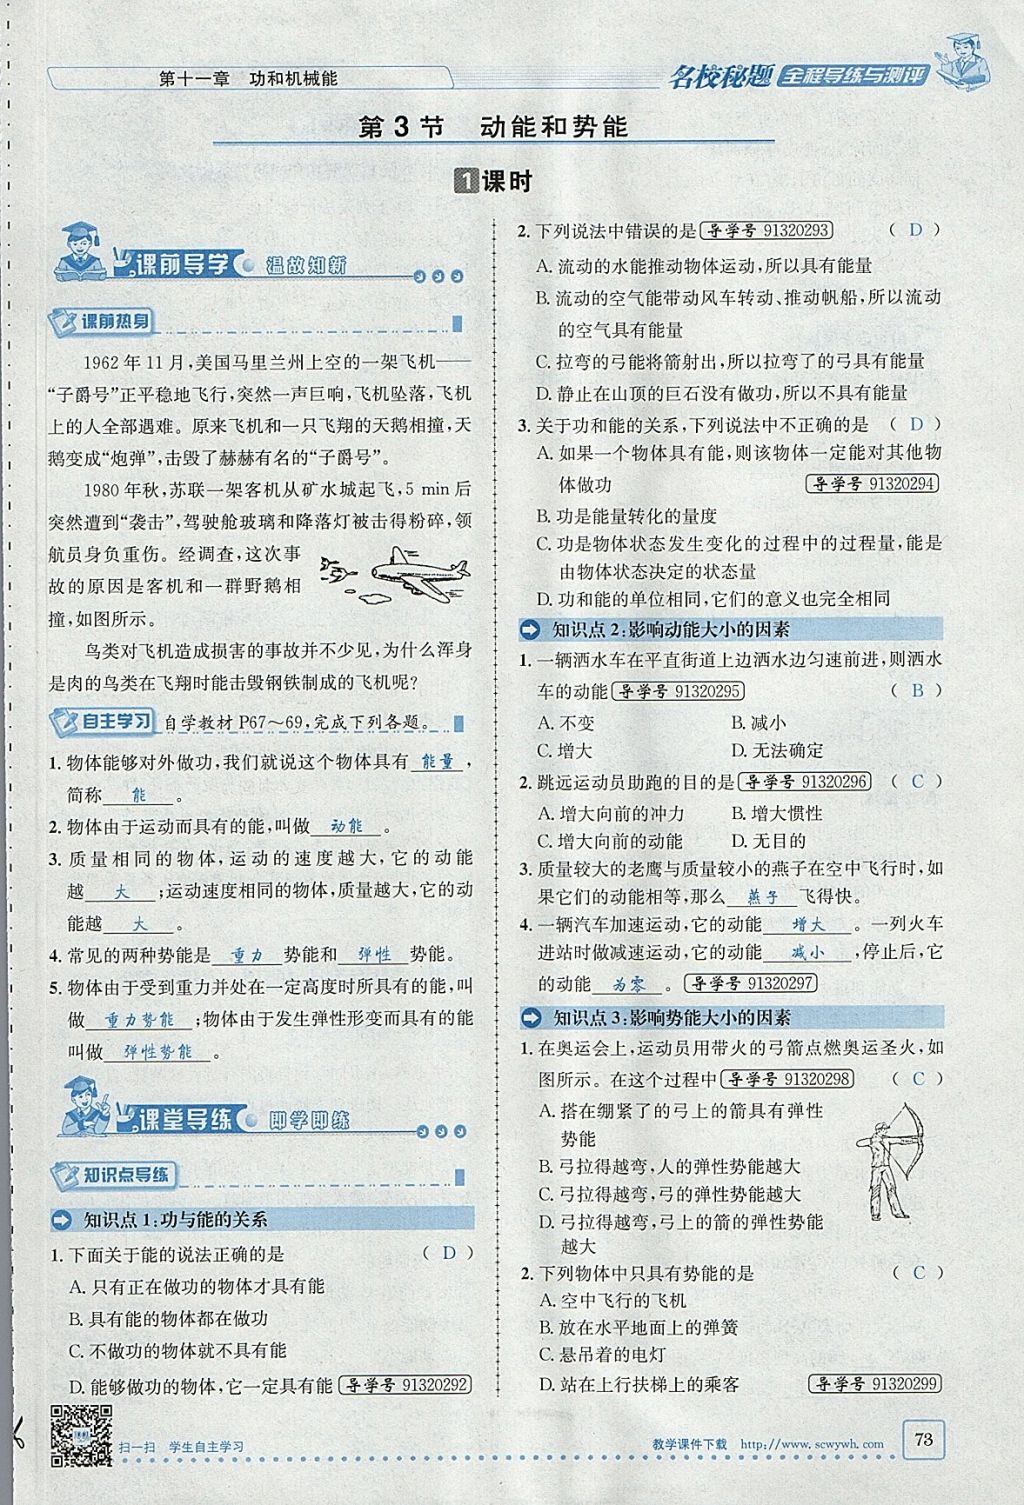 第十一章　功和机械能
名校秘题 全程导练与测评
第3节　动能和势能
1课时
课前导学 温故知新
课前热身
1962年11月,美国马里兰州上空的一架飞机——
“子爵号”正平稳地飞行,突然一声巨响,飞机坠落,飞机
上的人全部遇难。原来飞机和一只飞翔的天鹅相撞,天
鹅变成“炮弹”,击毁了赫赫有名的“子爵号”。
1980年秋,苏联一架客机从矿水城起飞,5 min后
突然遭到“袭击”,驾驶舱玻璃和降落灯被击得粉碎,领
航员身负重伤。经调查,这次事
故的原因是客机和一群野鹅相
撞,如图所示。
鸟类对飞机造成损害的事故并不少见,为什么浑身
是肉的鸟类在飞翔时能击毁钢铁制成的飞机呢?
自主学习 自学教材P67～69,完成下列各题。
1. 物体能够对外做功,我们就说这个物体具有 能量 ,
简称 能 。
2. 物体由于运动而具有的能,叫做 动能 。
3. 质量相同的物体,运动的速度越大,它的动能
越 大 ;运动速度相同的物体,质量越大,它的动
能越 大 。
4. 常见的两种势能是 重力 势能和 弹性 势能。
5. 物体由于受到重力并处在一定高度时所具有的能,叫
做 重力势能 ;物体由于发生弹性形变而具有的能
叫做 弹性势能 。
课堂导练 即学即练
知识点导练
知识点1:功与能的关系
1. 下面关于能的说法正确的是 ( D )
A. 只有正在做功的物体才具有能
B. 具有能的物体都在做功
C. 不做功的物体就不具有能
D. 能够做功的物体,它一定具有能 导学号 91320292
2. 下列说法中错误的是 导学号 91320293 ( D )
A. 流动的水能推动物体运动,所以具有能量
B. 流动的空气能带动风车转动、推动帆船,所以流动
的空气具有能量
C. 拉弯的弓能将箭射出,所以拉弯了的弓具有能量
D. 静止在山顶的巨石没有做功,所以不具有能量
3. 关于功和能的关系,下列说法中不正确的是 ( D )
A. 如果一个物体具有能,则该物体一定能对其他物
体做功 导学号 91320294
B. 功是能量转化的量度
C. 功是物体状态发生变化的过程中的过程量,能是
由物体状态决定的状态量
D. 功和能的单位相同,它们的意义也完全相同
知识点2:影响动能大小的因素
1. 一辆洒水车在平直街道上边洒水边匀速前进,则洒水
车的动能 导学号 91320295 ( B )
A. 不变　B. 减小
C. 增大　D. 无法确定
2. 跳远运动员助跑的目的是 导学号 91320296 ( C )
A. 增大向前的冲力　B. 增大惯性
C. 增大向前的动能　D. 无目的
3. 质量较大的老鹰与质量较小的燕子在空中飞行时,如
果它们的动能相等,那么 燕子 飞得快。
4. 一辆汽车加速运动,它的动能 增大 。一列火车
进站时做减速运动,它的动能 减小 ,停止后,它
的动能 为零 。 导学号 91320297
知识点3:影响势能大小的因素
1. 在奥运会上,运动员用带火的弓箭点燃奥运圣火,如
图所示。在这个过程中 导学号 91320298 ( C )
A. 搭在绷紧了的弓上的箭具有弹性
势能
B. 弓拉得越弯,人的弹性势能越大
C. 弓拉得越弯,弓的弹性势能越大
D. 弓拉得越弯,弓上的箭的弹性势能
越大
2. 下列物体中只具有势能的是 ( C )
A. 空中飞行的飞机
B. 放在水平地面上的弹簧
C. 悬吊着的电灯
D. 站在上行扶梯上的乘客 导学号 91320299
扫一扫　学生自主学习
教学课件下载　http://www.scwywh.com
73